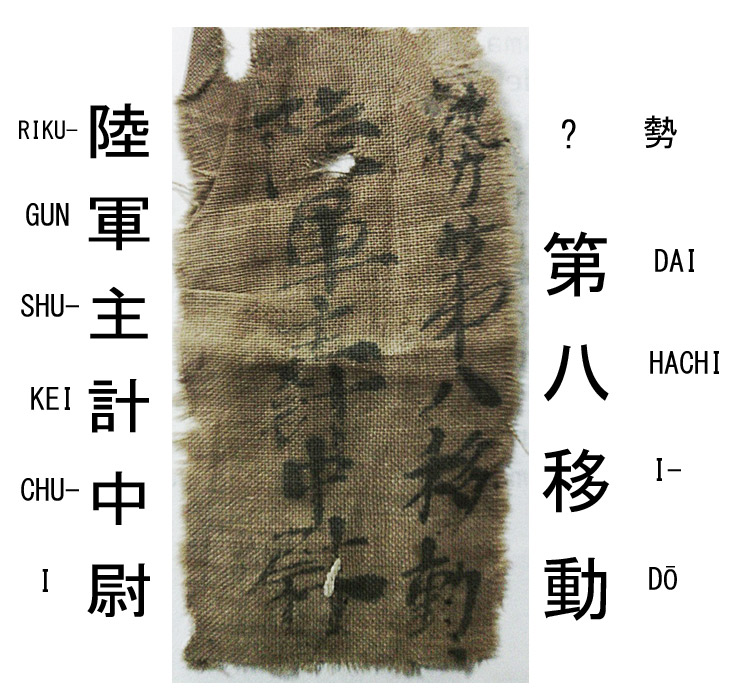 勢
?
DAI
HACHI
I-
DŌ
第八移動
第八移動
陸軍主計中尉
陸軍主計中尉
RIKU-
GUN
SHU-
KEI
CHU-
I